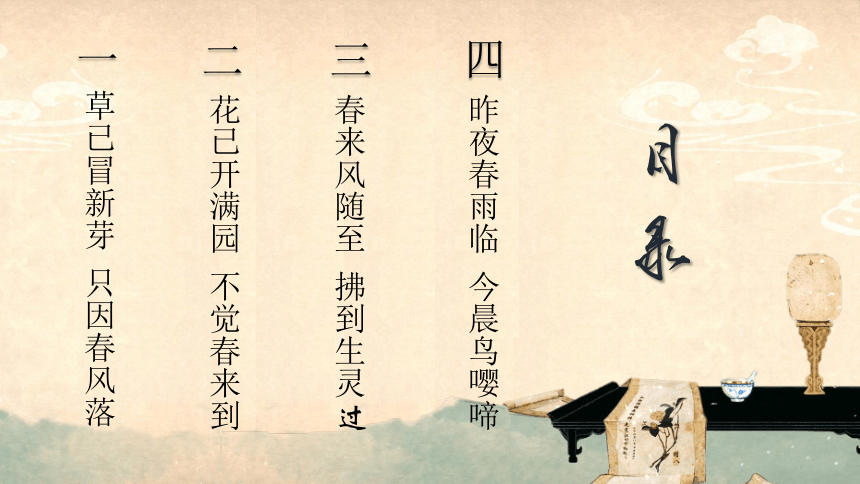 目录
一
草已冒新芽 只因春风落
二
花已开满园 不觉春来到
三
春来风随至 拂到生灵过
四
昨夜春雨临 今晨鸟嘤啼